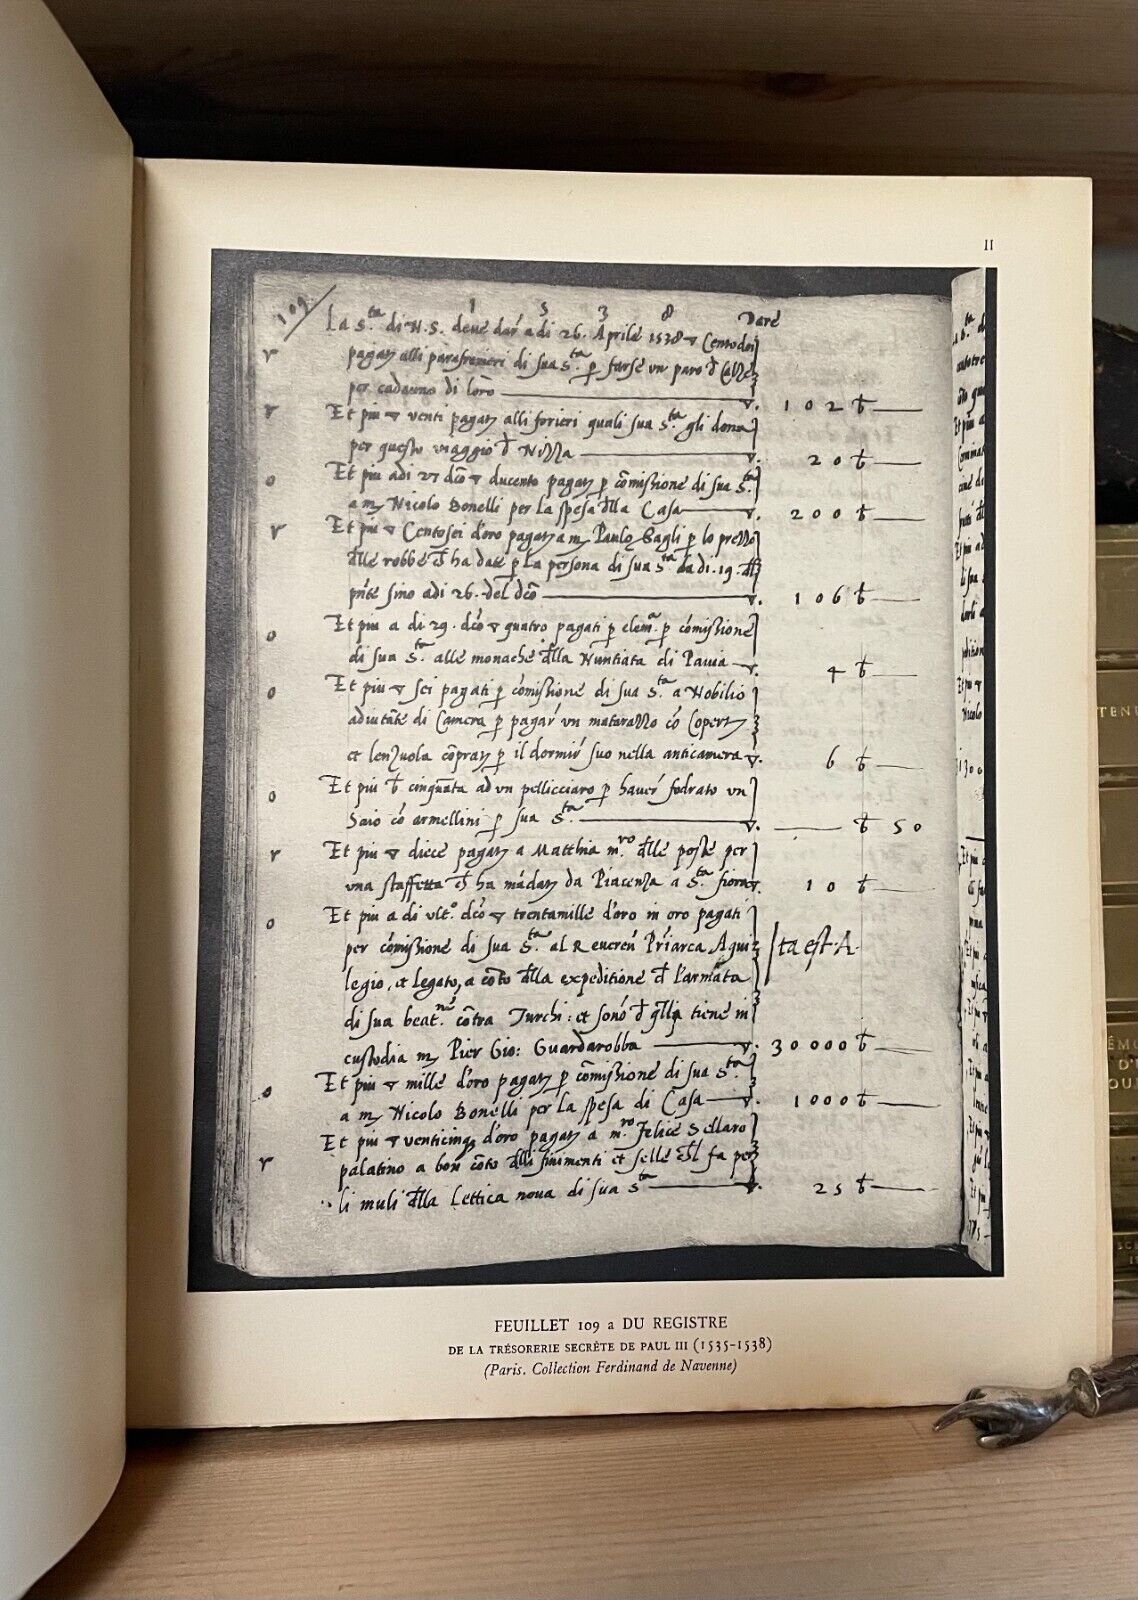 II
109
1 5 3 8 Dare
La S.ta di N.S. deve dar adi 26. Aprile 1538 ▽ Centodoi
pagati alli parafrenieri di sua S.ta p farse un paro d Calze
per cadauno di loro ▽. 102 b
Et piu ▽ venti pagati alli forieri quali sua S.ta gli dona
per questo viaggio d Nizza ▽. 20 b
Et piu adi 27 dco ▽ ducento pagati p comissione di sua S.ta
a m Nicolo Bonelli per la spesa dlla Casa ▽. 200 b
Et piu ▽ Centosei d'oro pagati a m Paulo Gagli p lo prezzo
dlle robbe ch ha date p la persona di sua S.ta da di .19. dl
pnte sino adi 26. del dco ▽. 106 b
Et piu a di 29. dco ▽ quatro pagati p elem.a p comissione
di sua S.ta alle monache dlla Nuntiata di Pavia ▽. 4 b
Et piu ▽ sei pagati p comissione di sua S.ta a Nobilio
adiutate di Camera p pagar un matarazzo co Copert
et lenzuola comprati p il dormir suo nella anticamera ▽. 6 b
Et piu b cinquata ad un pellicciaro p haver fodrato un
Saio co armellini p sua S.ta ▽. b 50
Et piu ▽ diece pagati a Matthia m.ro dlle poste per
una staffetta ch ha madata da Piacenza a S.ta fiora ▽. 10 b
Et piu a di ult.o dco ▽ trentamille d'oro in oro pagati
per comissione di sua S.ta al Reveren Priarca Aqui
legio, et legato, a coto dlla expeditione d l'armata
Ita est. A.
di sua beat.ne cotra Turchi: et sono d qlli tiene in
custodia m Pier Gio: Guardarobba ▽. 30000 b
Et piu ▽ mille d'oro pagati p comissione di sua S.ta
a m Nicolo Bonelli per la spesa di Casa ▽. 1000 b
Et piu ▽ venticinq d'oro pagati a m.ro Felice Sellaro
palatino a bon coto dlli finimenti et selle ch fa per
li muli dlla Lettica nova di sua S.ta ▽. 25 b
FEUILLET 109 a DU REGISTRE
DE LA TRÉSORERIE SECRÈTE DE PAUL III (1535-1538)
(Paris. Collection Ferdinand de Navenne)